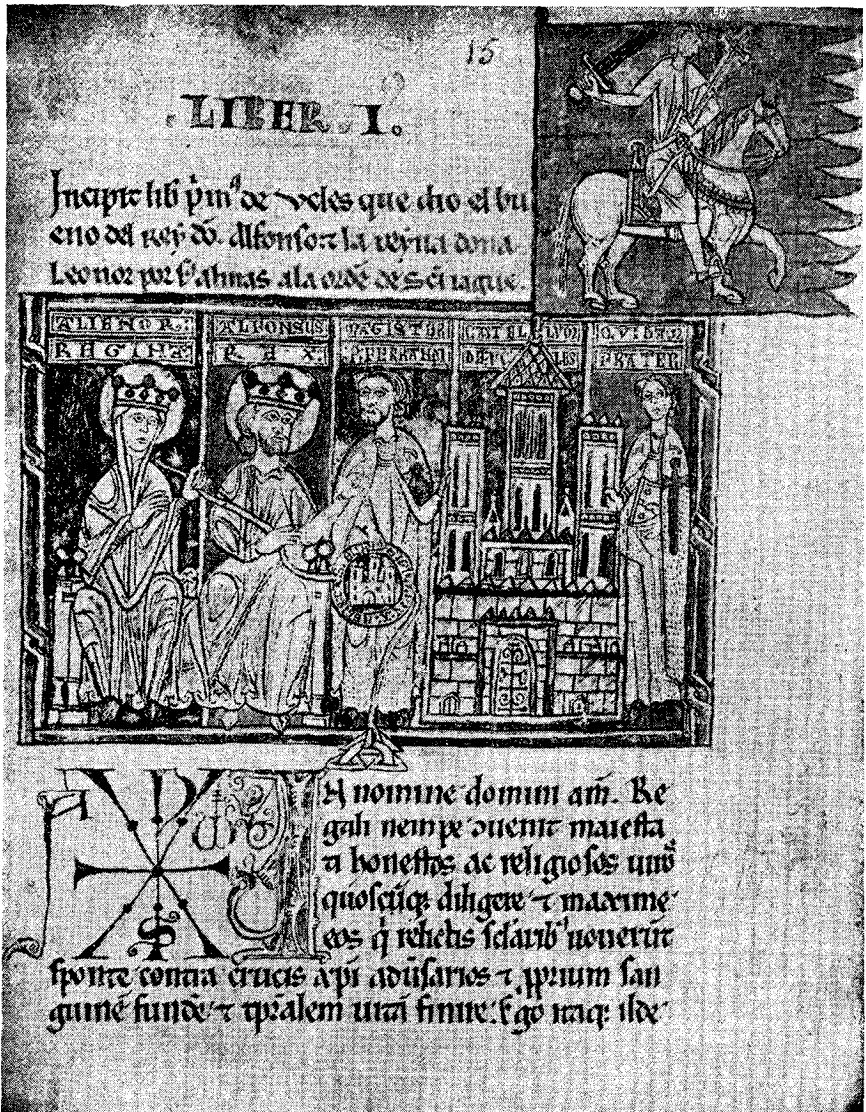 15
LIBER · I.
Incipit lib p̃m⁹ de Vcles que dio el bu
eno del Rey dõ. Alfonso ⁊ la reyna dona
Leonor por sᵒ almas a la ordẽ de Sc̃i iague.
ALIENOR
REGINA
ALFONSUS
REX
MAGISTER
P. FERRANDI
CASTELLVM
FRATER
N nomine domini am̃. Re
gali nempe ɔuenit maiesta
ti honestos ac religiosos uiros
quoscũq; diligere ⁊ maxime
eos q̇ relictis sc̃larib⁹ uouerũt
sponte contra crucis xp̃i adũsarios ⁊ ꝓprium san
guinẽ fundẽ ⁊ tp̃ralem uitã finire. Ego itaq; ilde